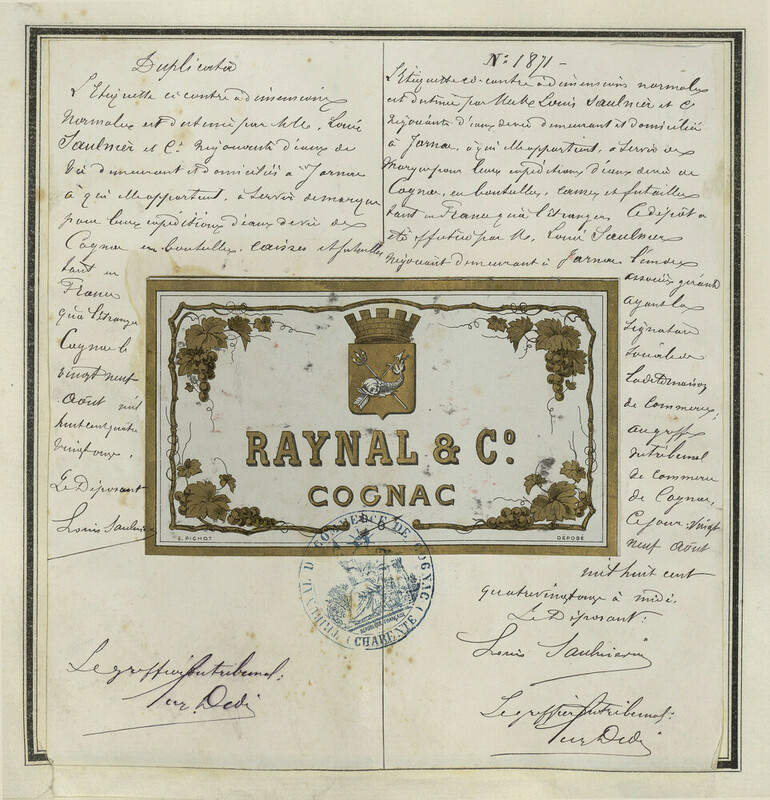 Duplicata
L'Etiquette ci contre a dimensions
normales est destinée par MM. Louis
Saulnier et Cie Négociants d'eaux de
vie demeurant et domiciliés à Jarnac
à qui elle appartient, à servir de marque
pour leurs expéditions d'eaux de vie de
Cognac en bouteilles, caisses et futailles
tant en
France
qu'à l'étranger
Cognac le
vingt neuf
Août mil
huit cent quatre
vingt onze.
Le Déposant
Louis Saulnier
Le greffier du tribunal:
No: 1871 -
L'Etiquette ci-contre a dimensions normales
est destinée par MM. Louis Saulnier et Cie
Négociants d'eaux de vie demeurant et domiciliés
à Jarnac, à qui elle appartient, à servir de
Marque pour leurs expéditions d'eaux de vie de
Cognac, en bouteilles, caisses et futailles
tant en France qu'à l'étranger. Ce dépôt a
été effectué par M. Louis Saulnier
négociant demeurant à Jarnac l'un des
associés gérant
ayant la
signature
sociale de
la dite maison
de Commerce,
au greffe
du tribunal
de commerce
de Cognac,
Ce jour vingt
neuf Août
mil huit cent
quatre vingt onze à midi.
Le Déposant:
Louis Saulnier
Le greffier du tribunal:
RAYNAL & Co.
COGNAC
E. PICHOT
DÉPOSÉ
TRIBUNAL DE COMMERCE DE COGNAC
(CHARENTE)